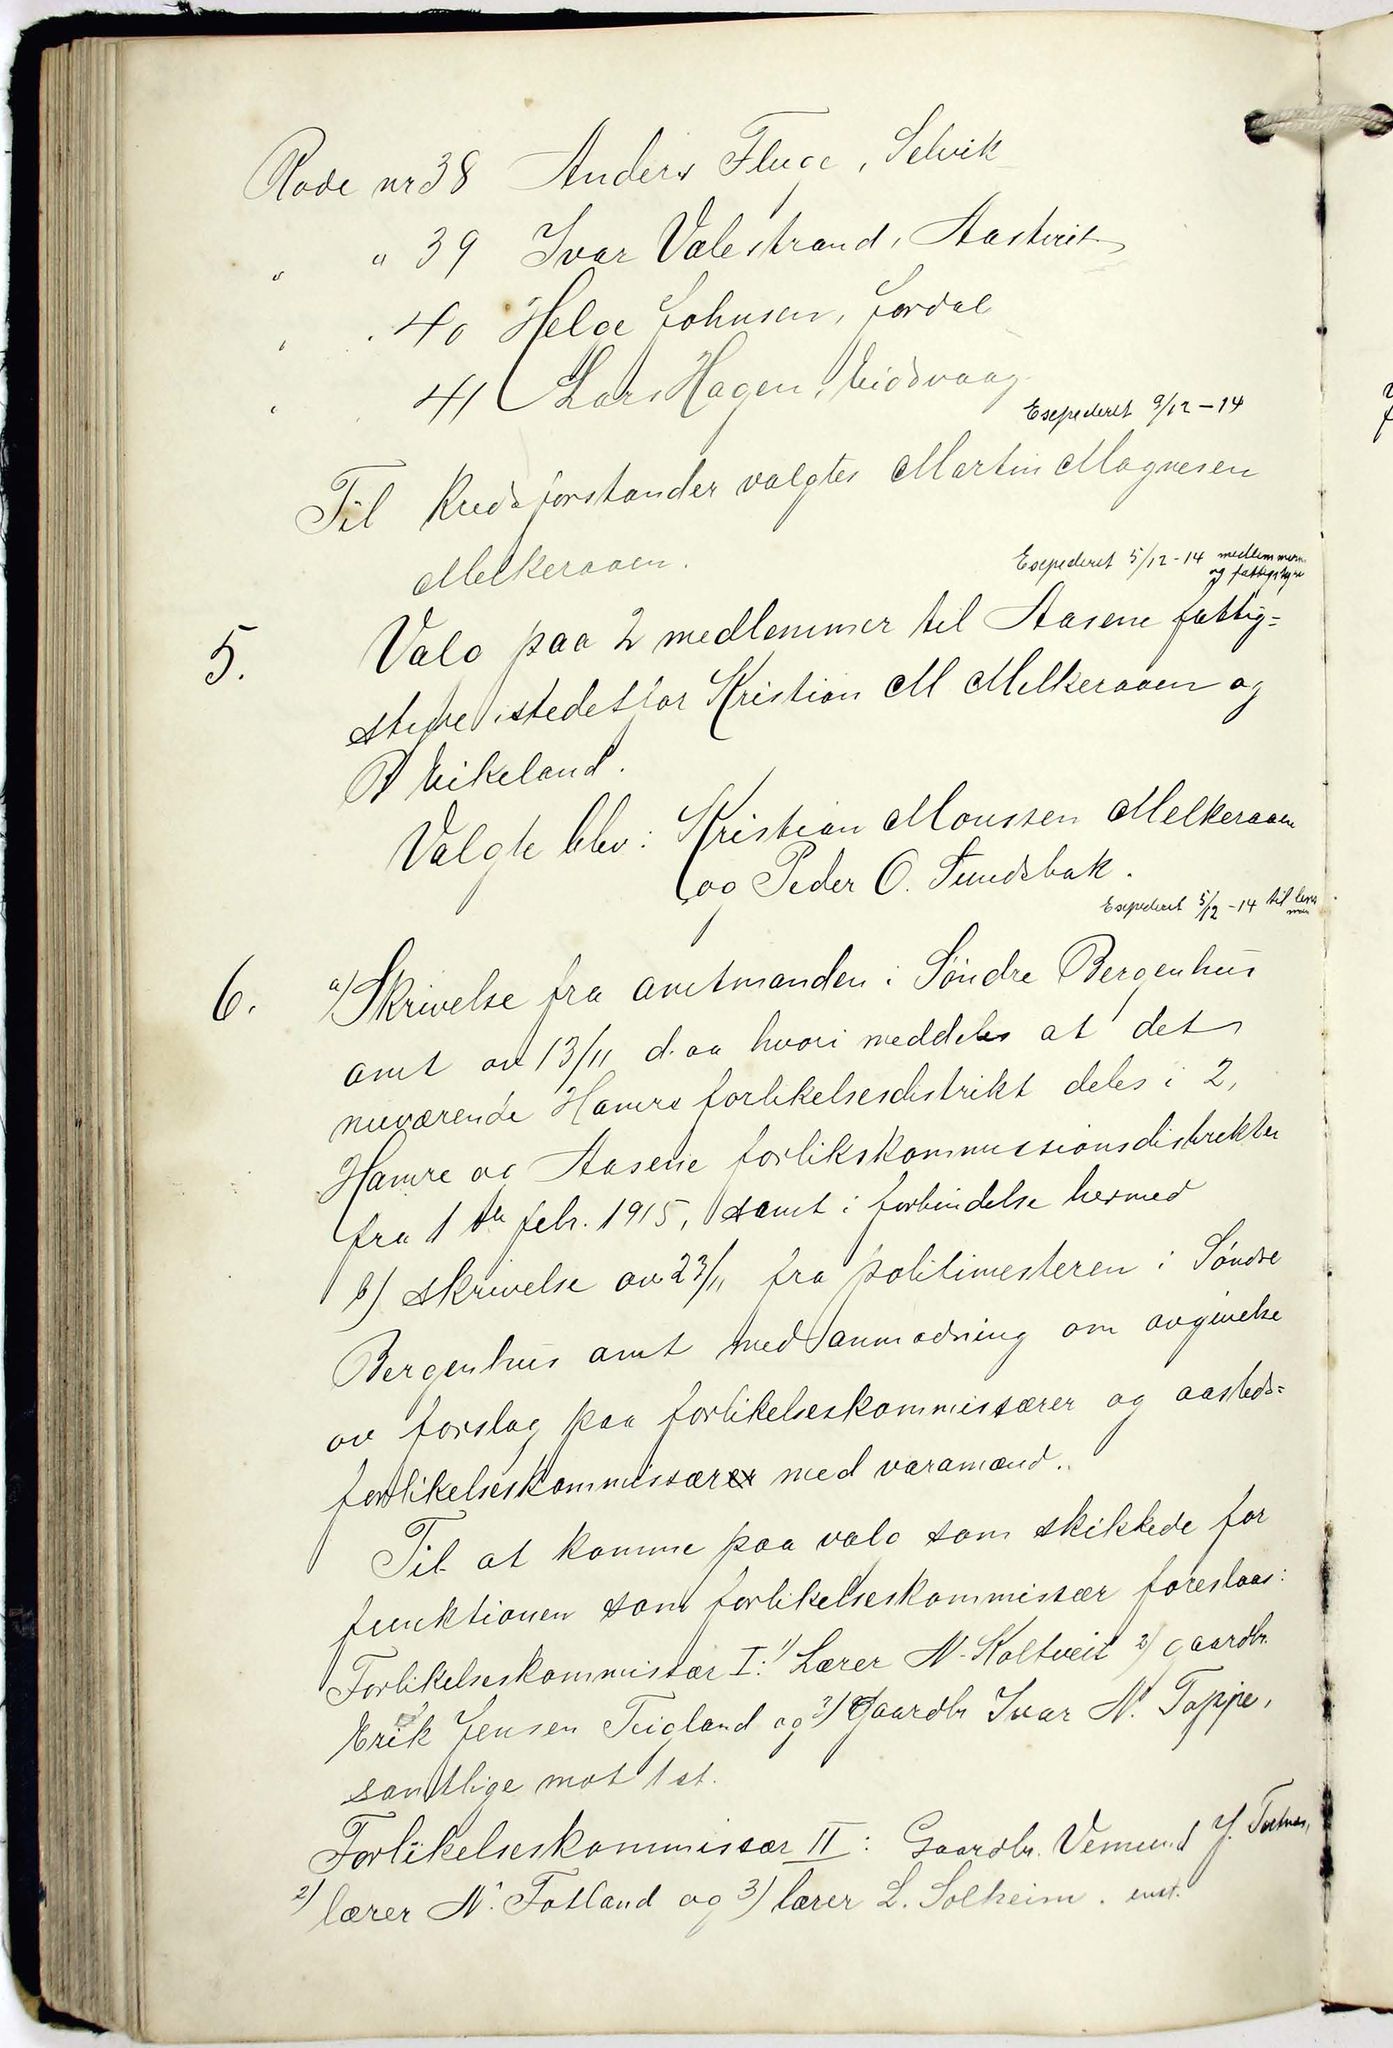 Rode nr 38 Anders Fluge, Selvik
" " 39 Ivar Valestrand, Aastveit
" " 40 Helge Johnsen, Jordal
" 41 Lars Hagen, Eidsvaag
Exepederet 9/12-14
Til kredsforstander valgtes Martin Magnesen
Melkeraaen.
Exepederet 5/12-14 medlemmerne
og fattigstyre
5. Valg paa 2 medlemmer til Aasene fattig=
styre istedetfor Kristian M Melkeraaen og
P Eikeland.
Valgte blev: Kristian Monssen Melkeraaen
og Peder O. Tundsbak.
Exepederet 5/12-14 til lens
man
6. a) Skrivelse fra amtmanden i Söndre Bergenhus
amt av 13/11 d.aa hvori meddeles at det
nuværende Hamre forlikelsesdistrikt deles i 2,
Hamre og Aasene forlikskommissionsdistrikter
fra 1ste febr. 1915, samt i forbindelse hermed
b) skrivelse av 23/11 fra politimesteren i Söndre
Bergenhus amt med anmodning om avgivelse
av forslag paa forlikelseskommissærer og aasteds=
forlikelseskommissærer med varamænd.
Til at komme paa valg som skikkede for
funktionen som forlikelseskommissær foreslaas:
Forlikelseskommissær I: 1) Lærer N. Koltveit 2) gaardbr.
Erik Jensen Teigland og 3) Gaardbr Ivar N. Toppe,
samtlige mot 1 st.
Forlikelseskommissær II: Gaardbr. Vemund J. Tertnæs,
2) lærer N. Fotland og 3) lærer L. Solheim. enst.